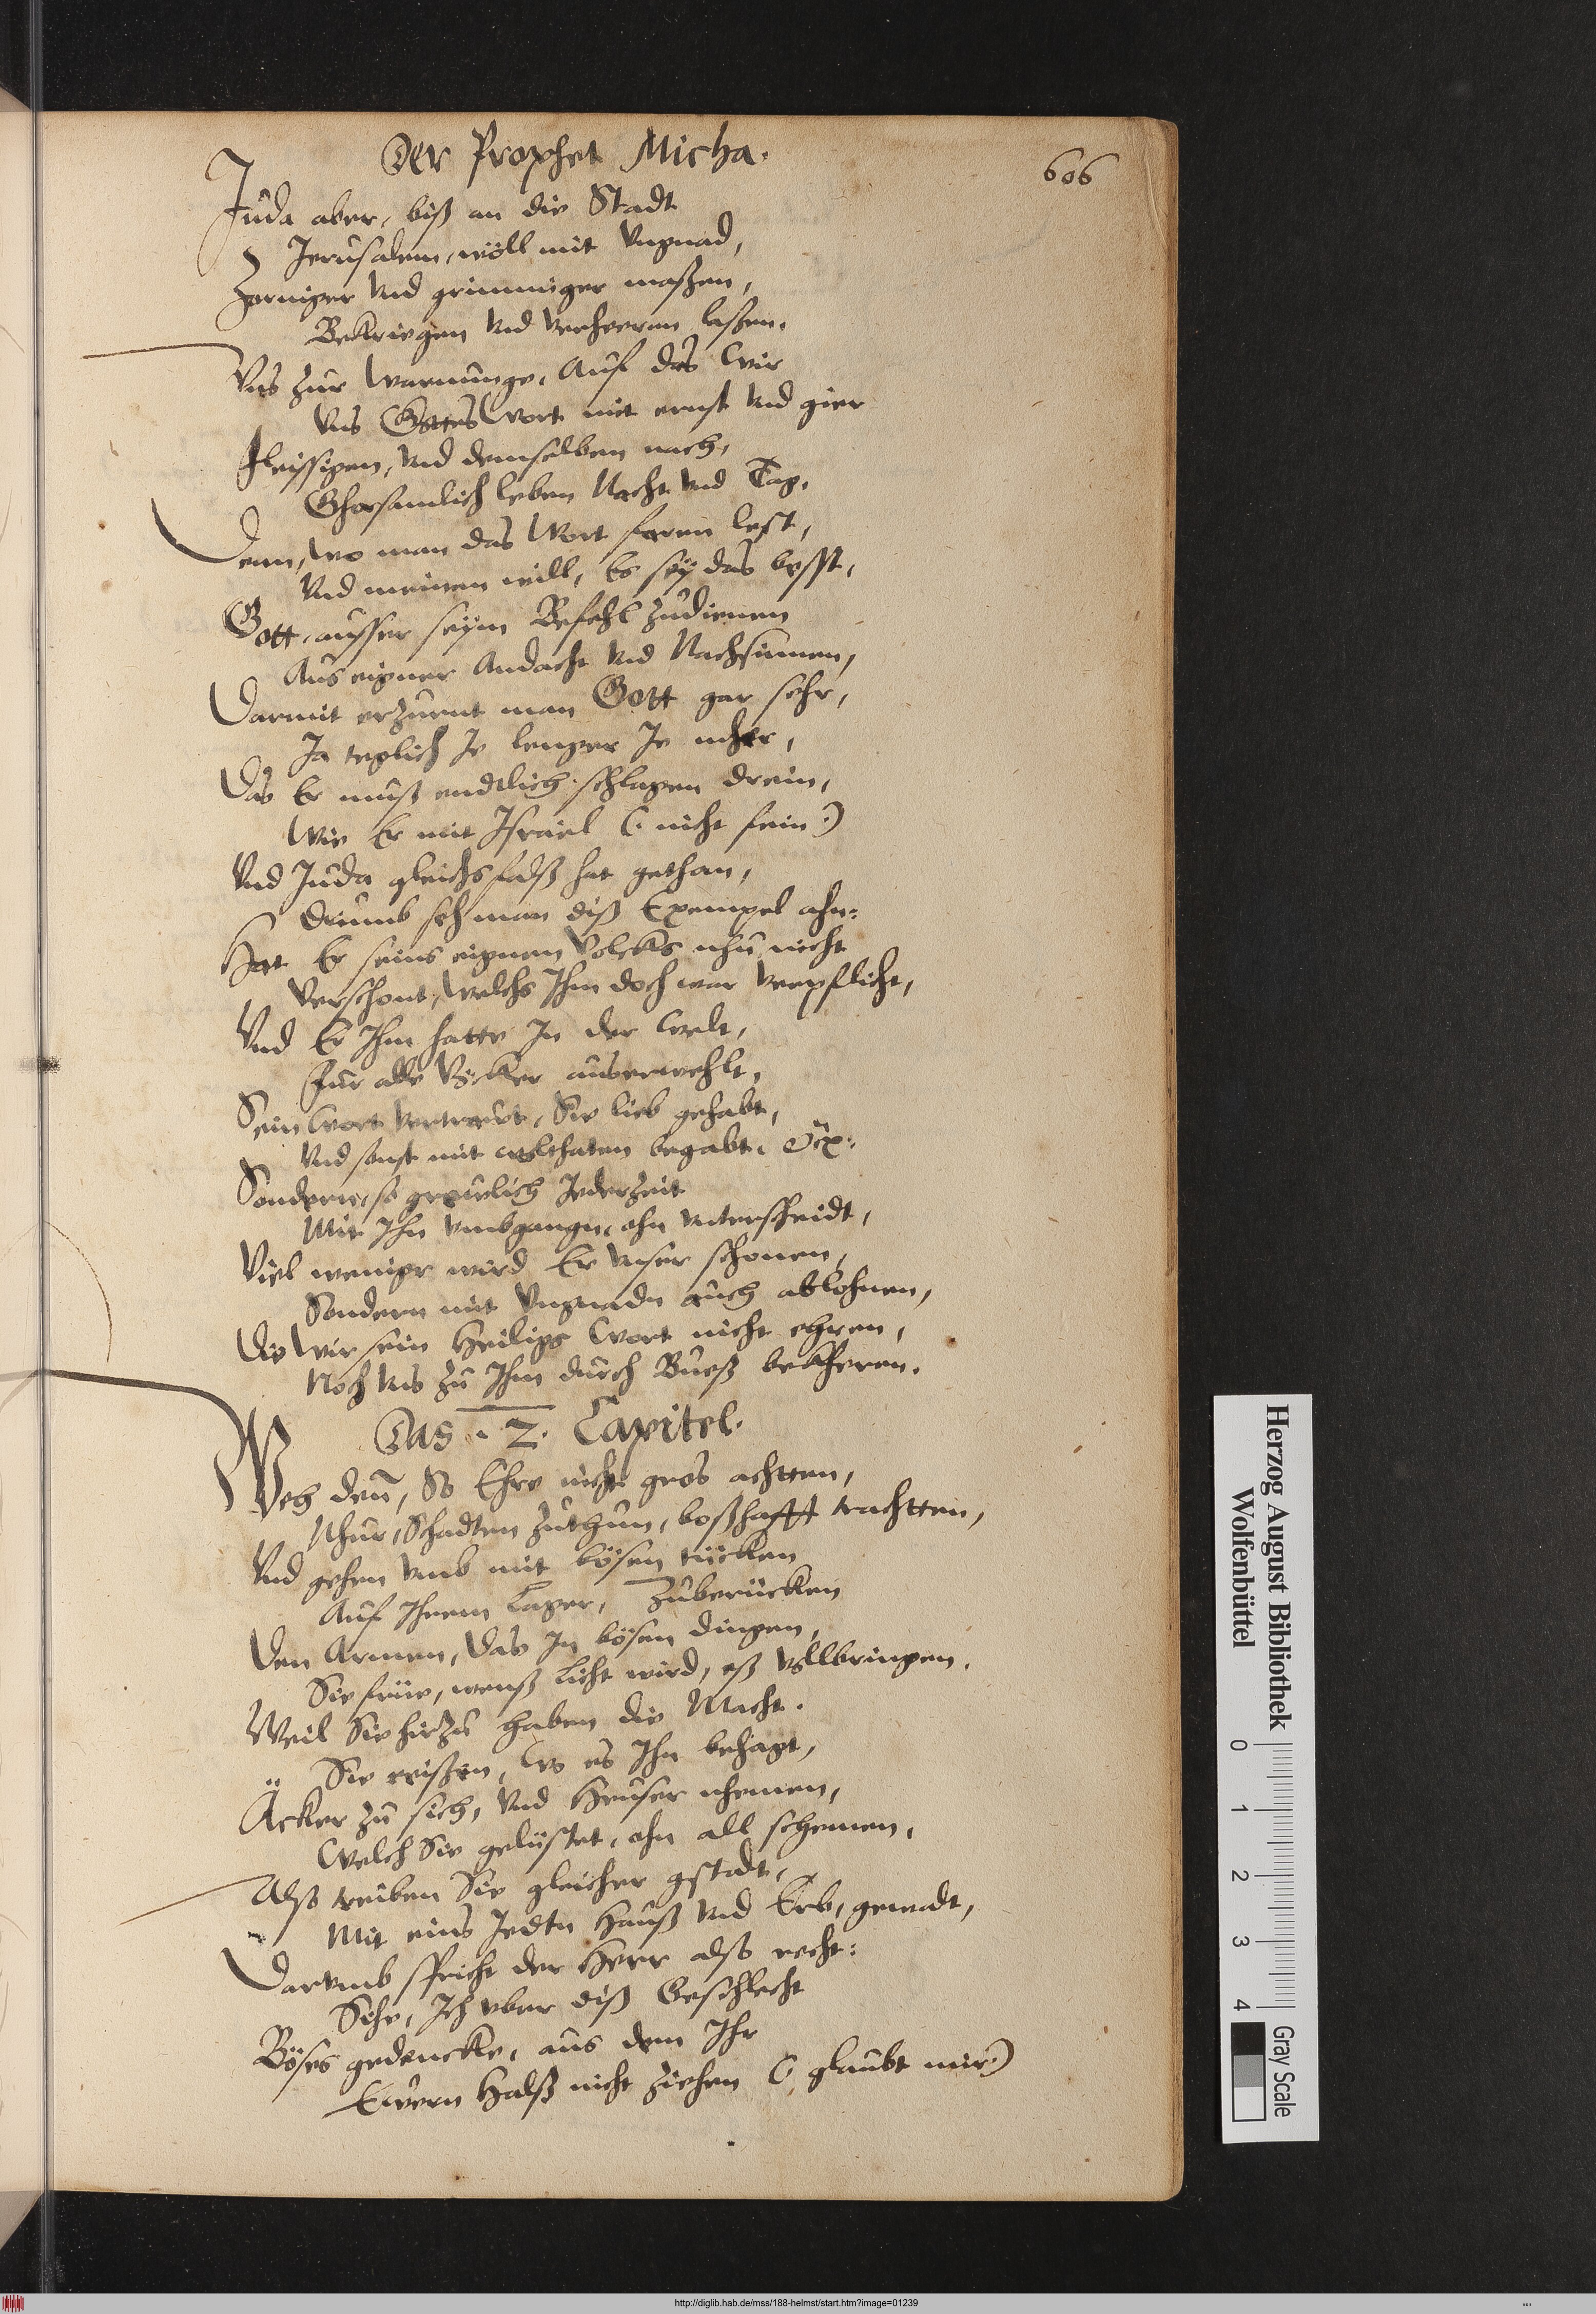 Der Prophet Micha.
606
Juda aber, biß an die Stadt
Jerusalem, wöll mit Vngnad,
Zorniger Vnd grimmiger maßen,
Bekriegen Vnd verheeren laßen.
Vns zur Warnunge, Auf das Wir
Vns Gottes Wort mit ernst Vnd gier
Fleissigen, Vnd demselben nach,
Ghorsamlich leben Nacht Vnd Tag.
Denn, wo man das Wort faren lest,
Vnd meinen will, Es seÿ das best,
Gott, ausser seÿm Befehl zudienen
Aus eigner Andacht Vnd Nachsinnen,
Darmit erzurnt man Gott gar sehr,
Ja teglich Je lenger Je mher,
Das Er muß endtlich schlagen drein,
Wie Er mit Israel (: nicht fein :)
Vnd Juda gleichsfalß hat gethan,
Drumb seh man diß Exempel ahn:
Hat Er seins eignen Volcks nhu nicht
Verschont, welchs Ihm doch war verpflicht,
Vnd Er Ihm hatte In der Welt,
Fur alle Völcker auserwehlt,
Sein Wort vertrawt, Sie lieb gehabt,
Vnd sonst mit wolthaten begabt.
Sondern, so grewlich Jederzeit
Mit Ihn vmbgangn, ohn vnterscheidt,
Viel weniger wird Er Vnser schonen,
Sondern mit Vngnadn auch ablohnen,
Die Wir sein Heiligs Wort nicht ehren,
Noch Vns zu Ihm durch Bueß bekheren.
Das . 2 . Capitel.
Weh den, So Ehre nicht gros achtten,
Nhur, Schadten zuthun, boßhafft trachtten,
Vnd gehen vmb mit bösen tücken
Auf Ihrem Lager, Zuberücken
Den Armen, Das In bösen dingen,
Sie früe, wenß licht wird, eß vollbringen.
Weil Sie hirzu haben die Macht.
Sie reißen, Wo es Ihn behagt,
Äcker zu sich, Vnd Heuser nhemen,
Welch Sie gelüstet, ohn all schemen,
Also treiben Sie gleicher gstadt,
Mit eins Jedtn Hauß Vnd Erb, gewadt,
Darumb spricht der Herr also recht:
Sihe, Ich vber diß Geschlecht
Böses gedencke, aus dem Ihr
Ewern Halß nicht ziehen (: glaubt mir :)
Herzog August Bibliothek
Wolfenbüttel
0 1 2 3 4
Gray Scale
http://diglib.hab.de/mss/188-helmst/start.htm?image=01239